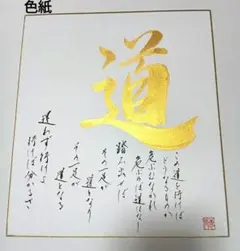 色紙
道
この道を行けば
どうなるものか
危ぶむなかれ
危ぶめば道はなし
踏み出せば
その一足が
道となり
その一足が
道となる
迷わず行けよ
行けば分かるさ